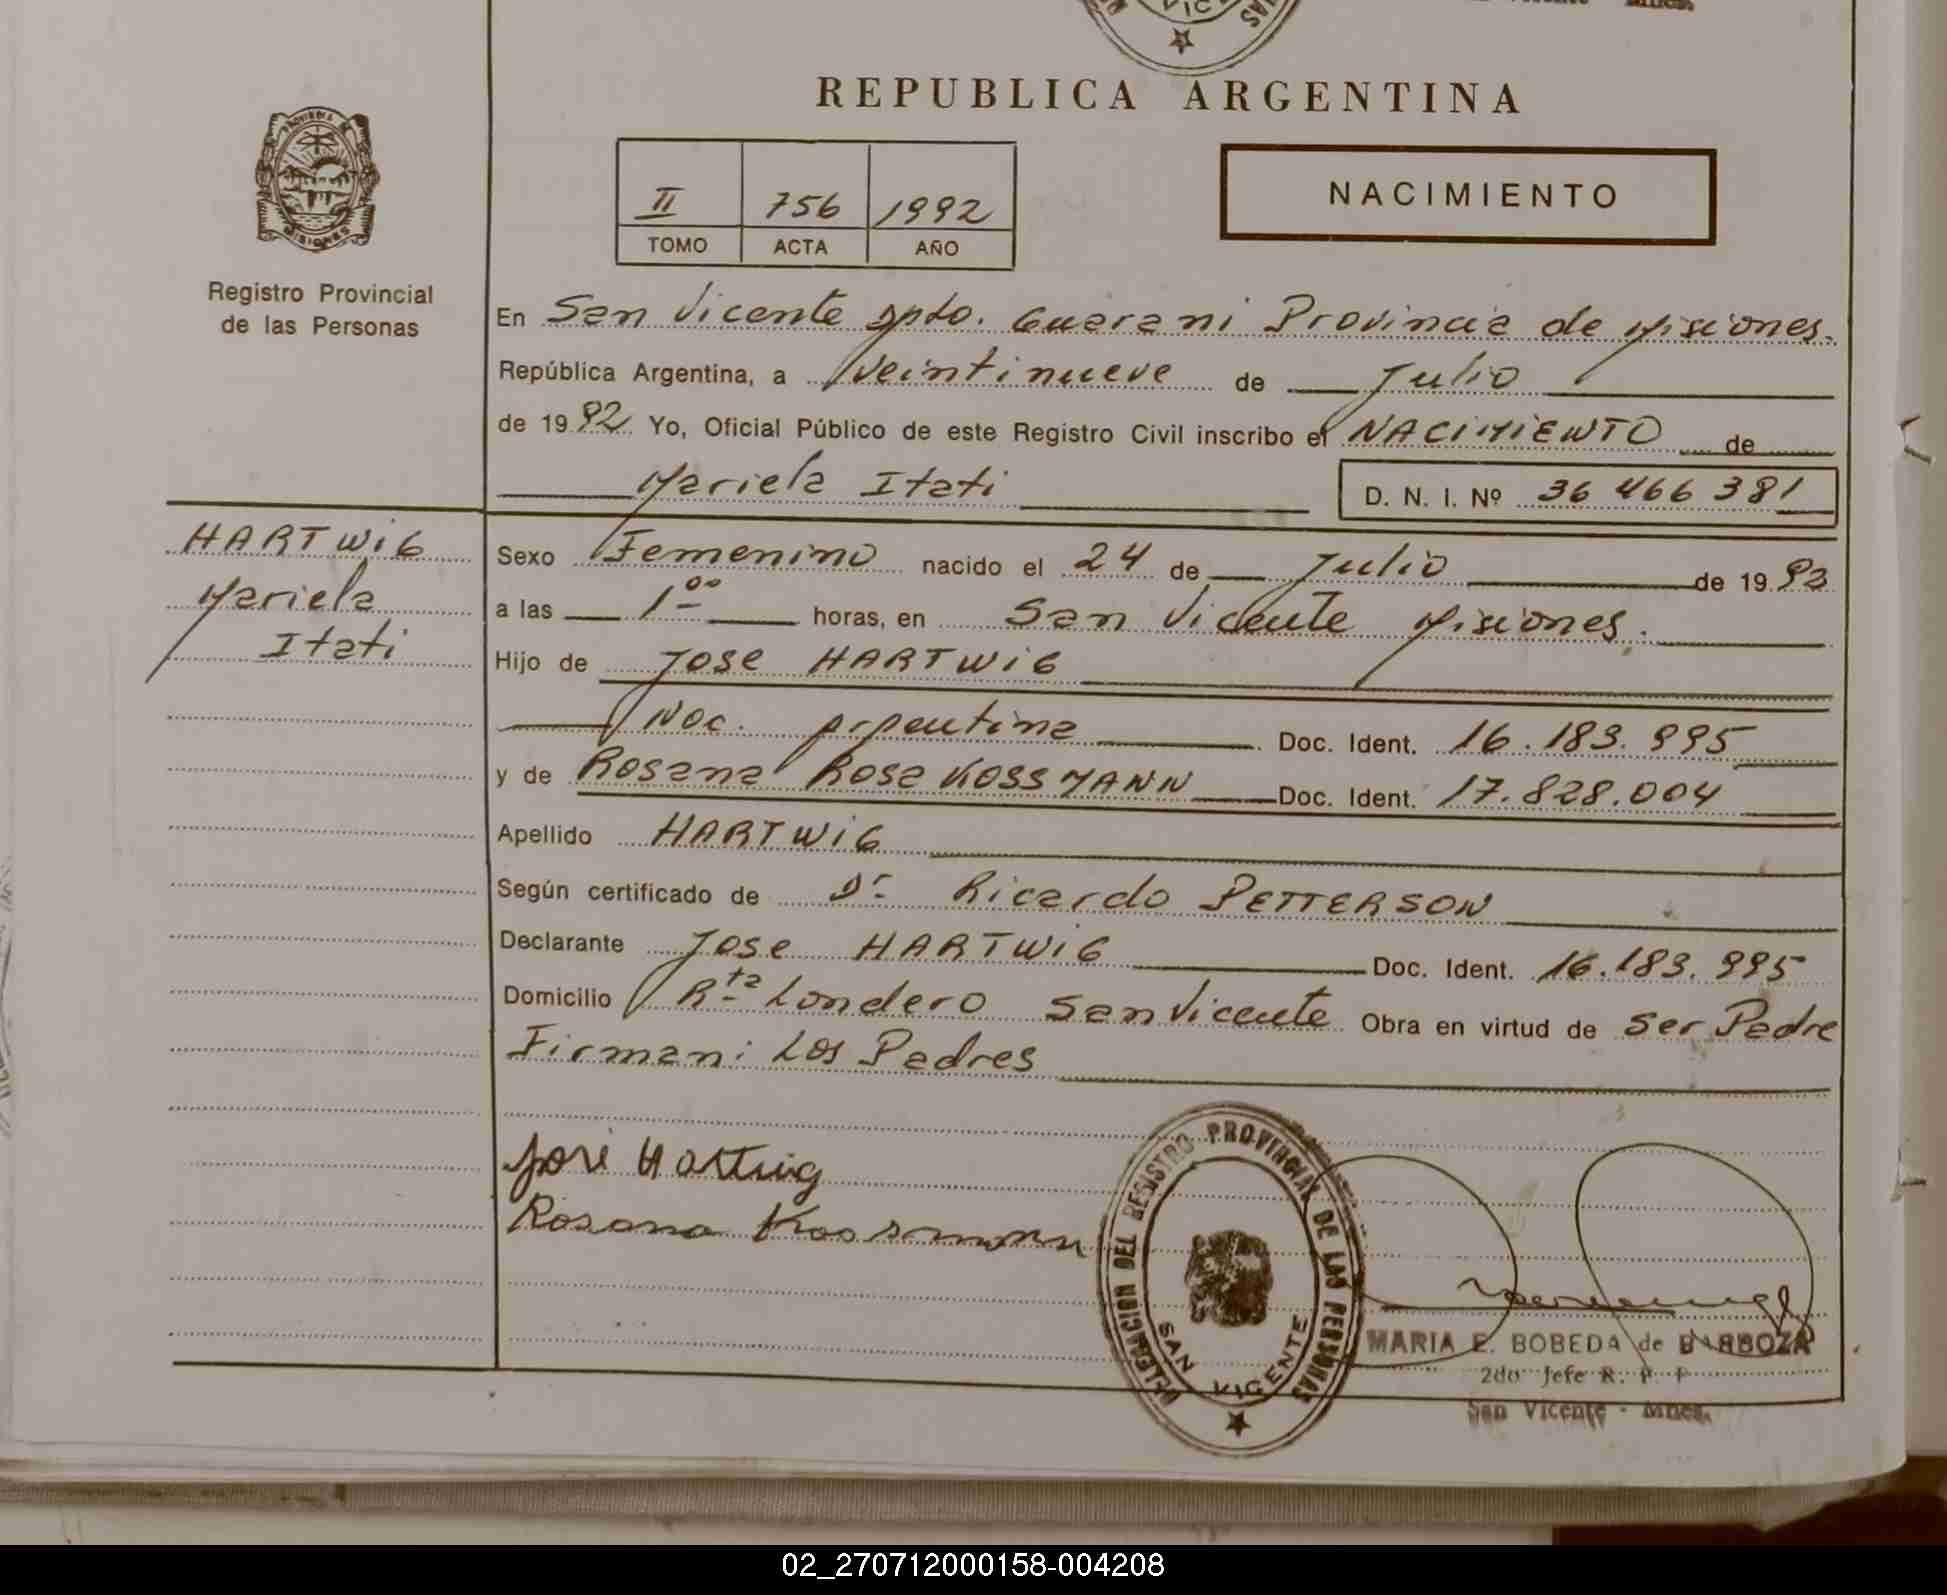 VIC
Mnes.
REPUBLICA ARGENTINA
PROVINCIA DE
MISIONES
Registro Provincial
de las Personas
II 756 1992
TOMO ACTA AÑO
NACIMIENTO
En San Vicente Dpto. Guarani Provincia de Misiones.
República Argentina, a Veintinueve de Julio
de 1992 Yo, Oficial Público de este Registro Civil inscribo el NACIMIENTO de
Mariela Itati D. N. I. Nº 36 466 381
HARTWIG
Mariela
Itati
Sexo Femenino nacido el 24 de Julio de 1992
a las 1 00 horas, en San Vicente Misiones.
Hijo de Jose HARTWIG
Nac. Argentina Doc. Ident. 16.183.995
y de Rosana Rosa KOSSMANN Doc. Ident. 17.828.004
Apellido HARTWIG
Según certificado de Dr Ricardo PETTERSON
Declarante Jose HARTWIG Doc. Ident. 16.183.995
Domicilio Rta Londero San Vicente Obra en virtud de ser Padre
Firman: Los Padres
José Hartwig
Rosana Koosmann
DELEGACION DEL REGISTRO PROVINCIAL DE LAS PERSONAS
SAN VICENTE
MARIA E. BOBEDA de BARBOZA
2do Jefe R. P. P
San Vicente - Mnes.
02_270712000158-004208